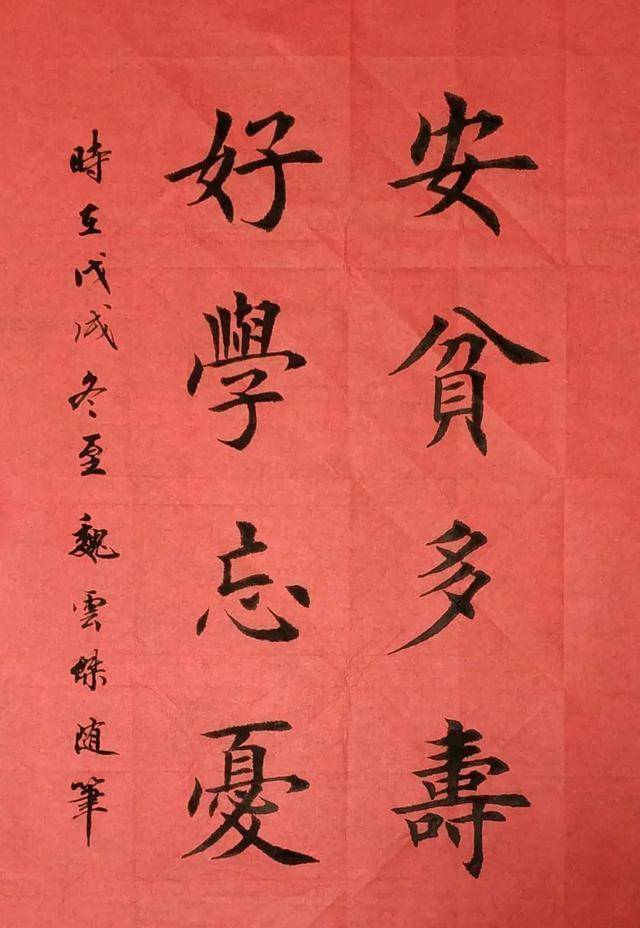 安貧多壽
好學忘憂
時在戊戌冬至魏雲姝随筆